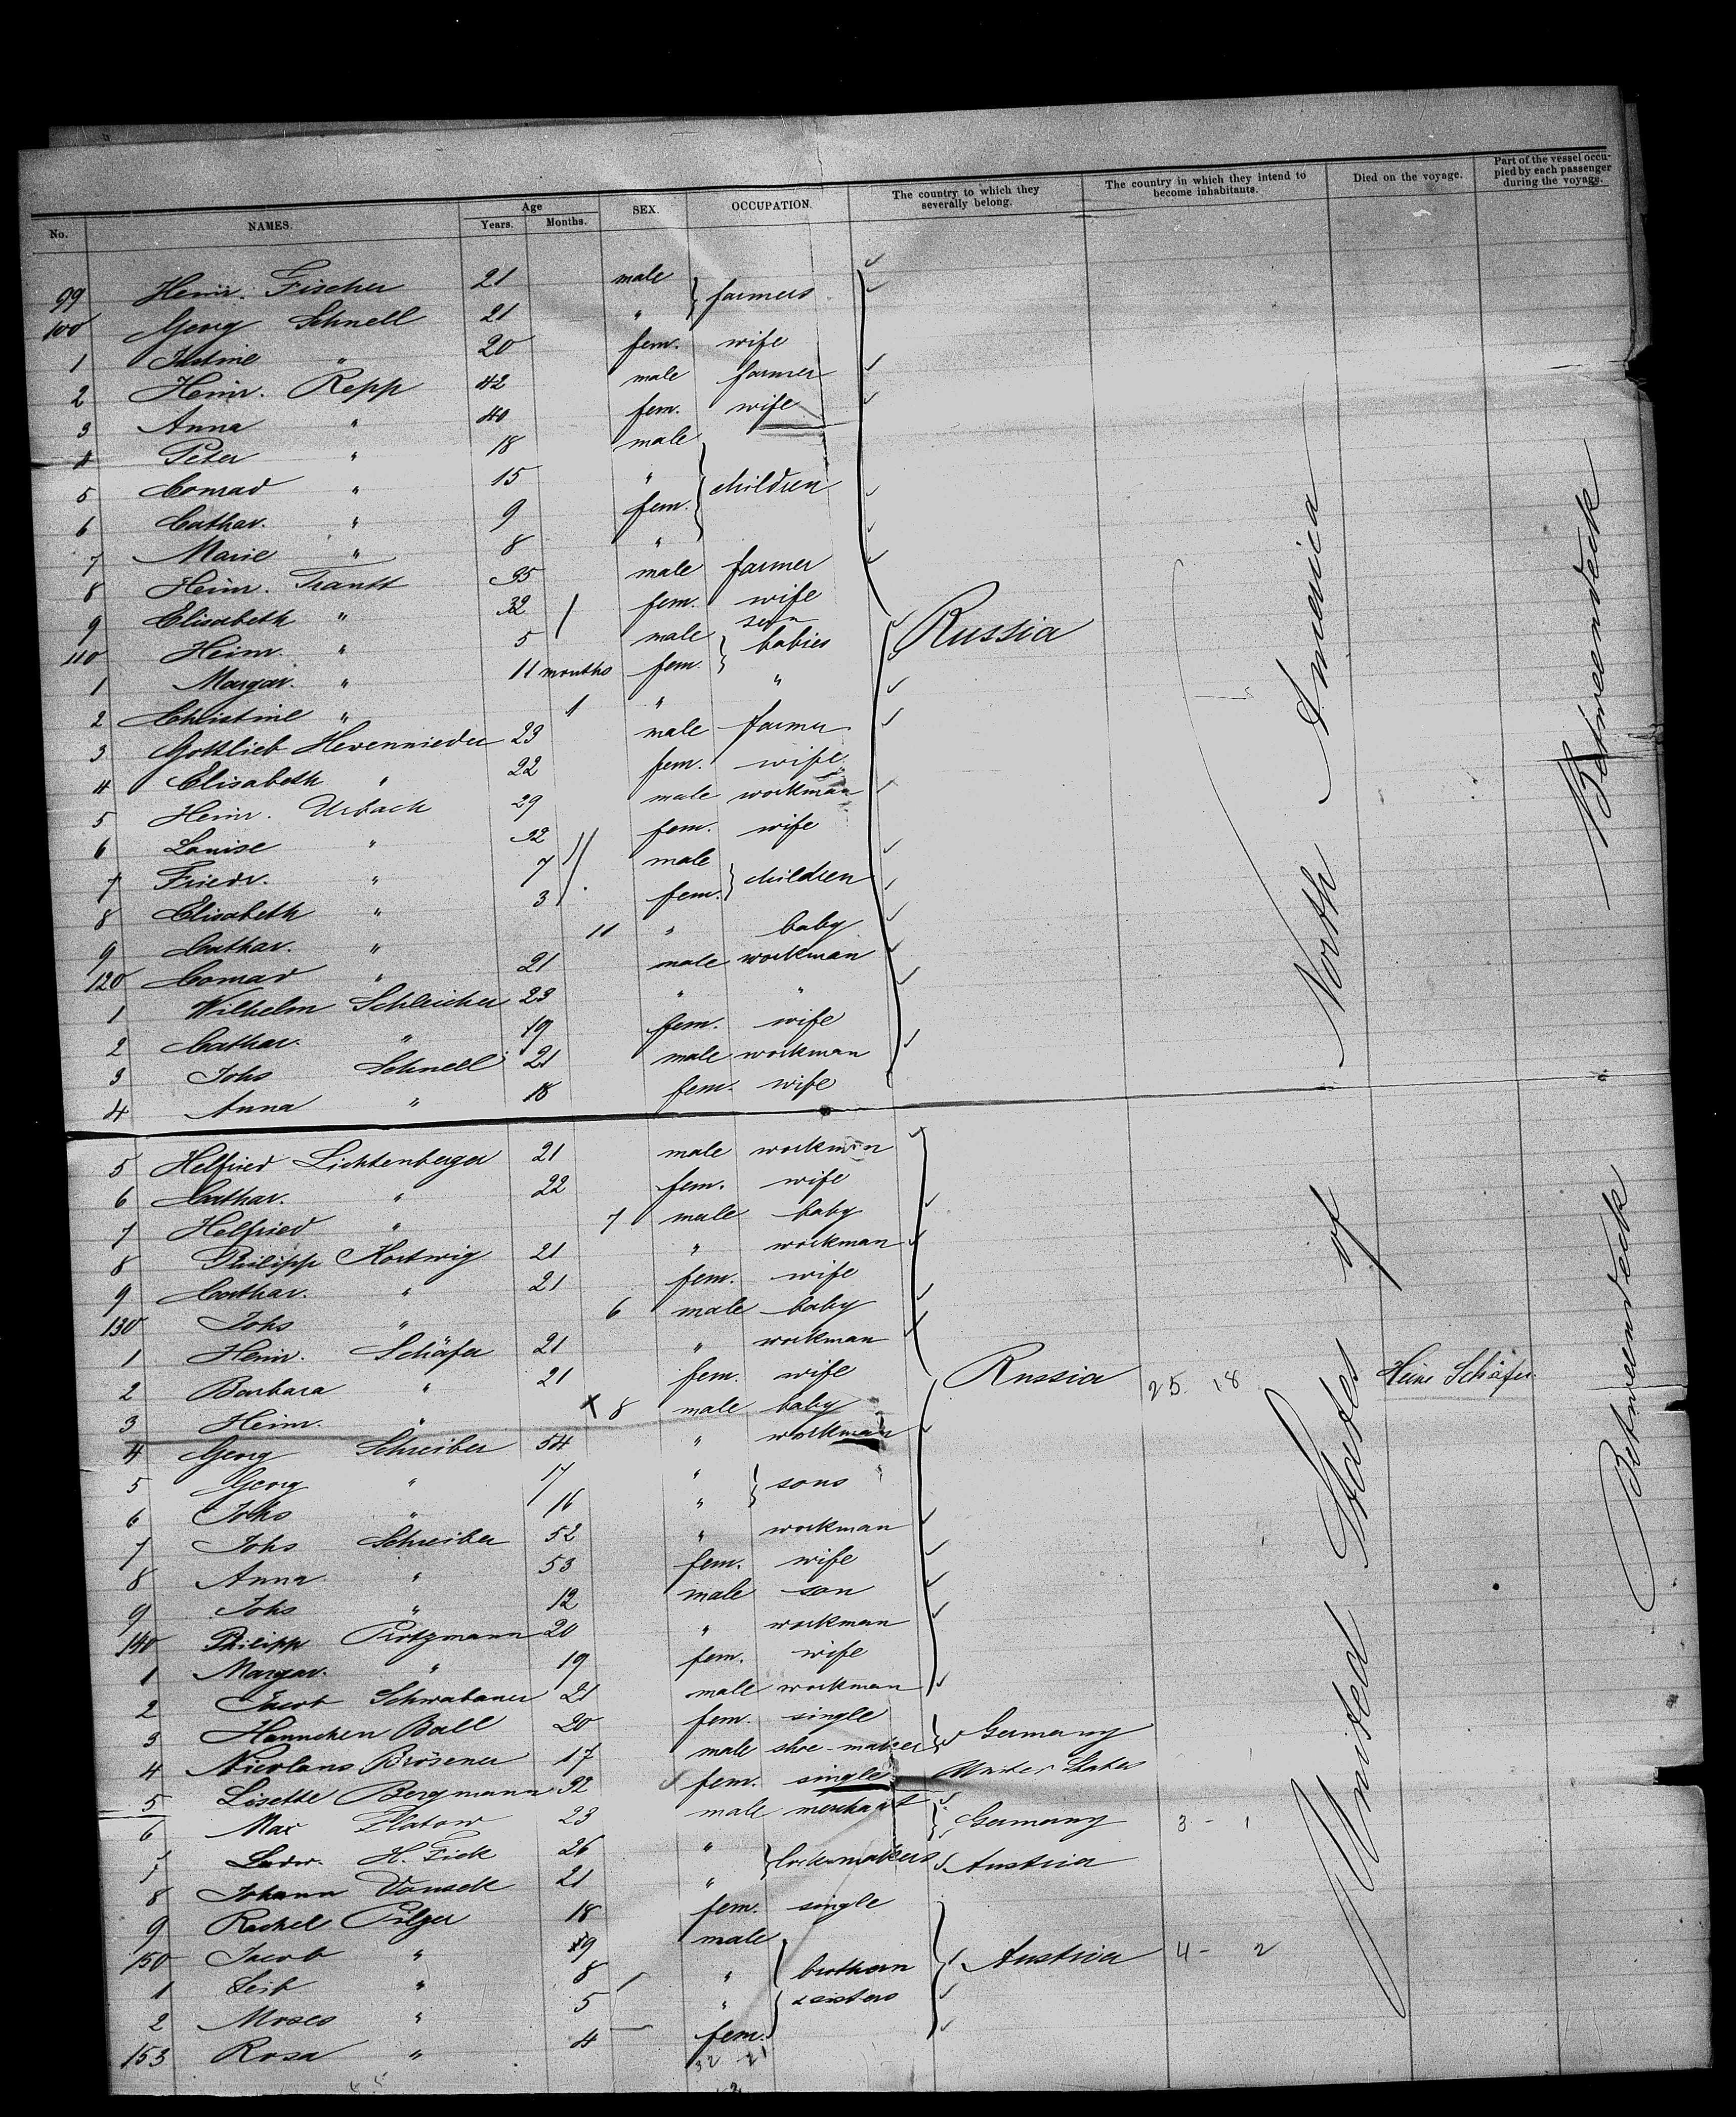 No. NAMES. Age Years. Months. SEX. OCCUPATION. The country to which they severally belong. The country in which they intend to become inhabitants. Died on the voyage. Part of the vessel occupied by each passenger during the voyage.
99 Heinr. Fischer 21 male farmers
100 Georg Schnell 21 "
1 Justine " 20 fem. wife
2 Heinr. Repp 42 male farmer
3 Anna " 40 fem. wife
4 Peter " 18 male children
5 Conrad " 15 "
6 Cathar. " 9 fem.
7 Marie " 8 "
8 Heinr. Trautt 35 male farmer
9 Elisabeth " 32 fem. wife
110 Heinr. " 5 male son
1 Margar. " 11 months fem. babies
2 Christine " 1 " "
3 Gottlieb 23 male farmer
4 Elisabeth " 22 fem. wife
5 Heinr. Urbach 29 male workman
6 Louise " 32 fem. wife
7 Friedr. " 7 male children
8 Elisabeth " 3 fem.
9 Cathar. " 11 " baby
120 Conrad " 21 male workman
1 Wilhelm Schleicher 23 " "
2 Cathar. " 19 fem. wife
3 Johs Schnell 21 male workman
4 Anna " 18 fem. wife
Russia
5 Helfried Lichtenberger 21 male workman
6 Cathar. " 22 fem. wife
7 Helfried " 7 male baby
8 Philipp Hartwig 21 " workman
9 Cathar. " 21 fem. wife
130 Johs " 6 male baby
1 Heinr. Schäfer 21 " workman
2 Barbara " 21 fem. wife
3 Heinr. " x 8 male baby Heinr Schäfer
4 Georg Schreiber 54 " workman
5 Georg " 17 " sons
6 Johs " 16 "
7 Johs Schreiber 52 " workman
8 Anna " 53 fem. wife
9 Johs " 12 male son
140 Philipp Protzmann 20 " workman
1 Margar. " 19 fem. wife
2 Jacob Schwabauer 21 male workman
Russia 25. 18
3 Hannchen Ball 20 fem. single Germany
4 Nicolaus Brösener 17 male shoe-maker
5 Lisette Bergmann 32 fem. single United States
6 Max Flatow 23 male merchant Germany 3 - 1
7 Ludw. H. Fick 26 "
8 Johann 21 " Austria
9 Rachel Pilger 18 fem. single
150 Jacob " 9 male brothers & sisters Austria 4 - 2
1 Leib " 8 "
2 Moses " 5 "
153 Rosa " 4 fem.
32 21
United States of North America
Betweendeck
Betweendeck